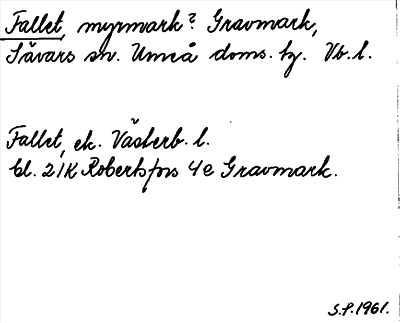 Fallet, myrmark? Gravmark,
Sävars sn. Umeå doms. hg. Vb. l.
Fallet, ek. Västerb. l.
bl. 21K Robertsfors 4e Gravmark.
S.P. 1961.